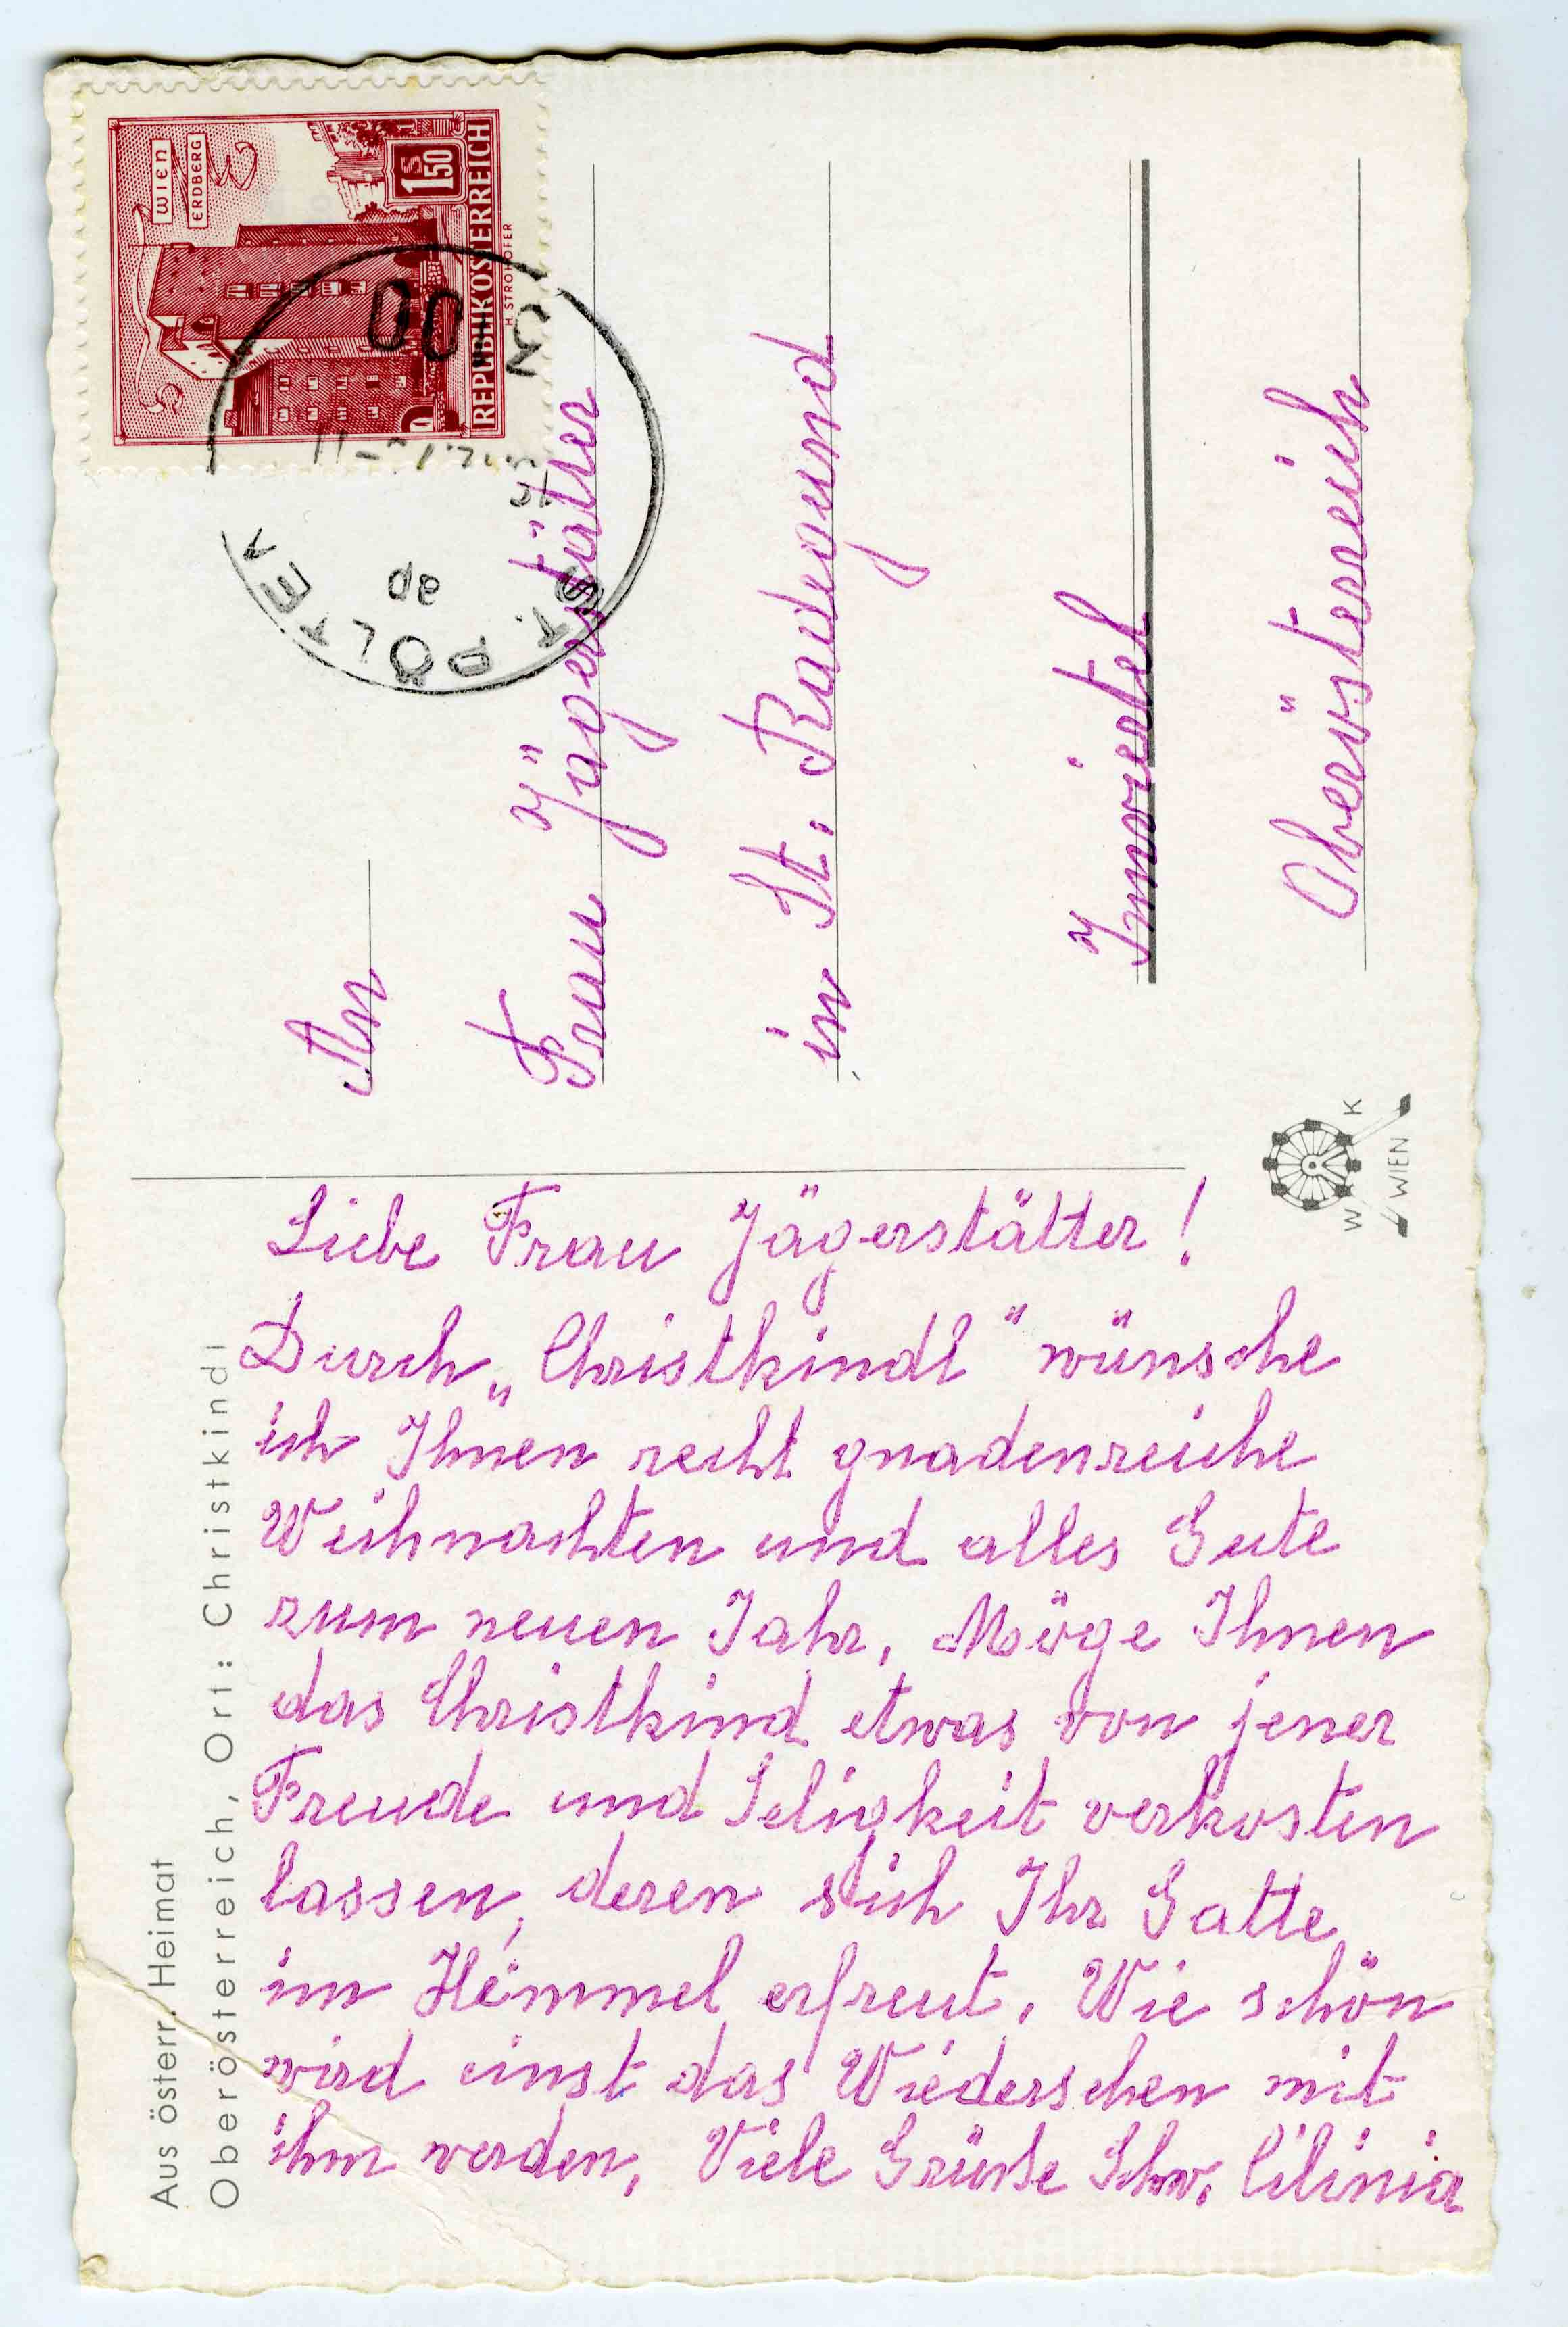 WIEN
ERDBERG
1 S 50
REPUBLIK ÖSTERREICH
H. STROHOFER
ST. PÖLTEN
An
Frau Jägerstätter
in St. Radegund
Innviertel
Oberösterreich
W K
WIEN
Aus österr. Heimat
Oberösterreich, Ort: Christkindl
Liebe Frau Jägerstätter!
Durch „Christkindl" wünsche
ich Ihnen recht gnadenreiche
Weihnachten und alles Gute
zum neuen Jahr. Möge Ihnen
das Christkind etwas von jener
Freude und Seligkeit verkosten
lassen, deren sich Ihr Gatte
im Himmel erfreut. Wie schön
wird einst das Wiedersehen mit
ihm werden. Viele Grüße Schw. Cilinia